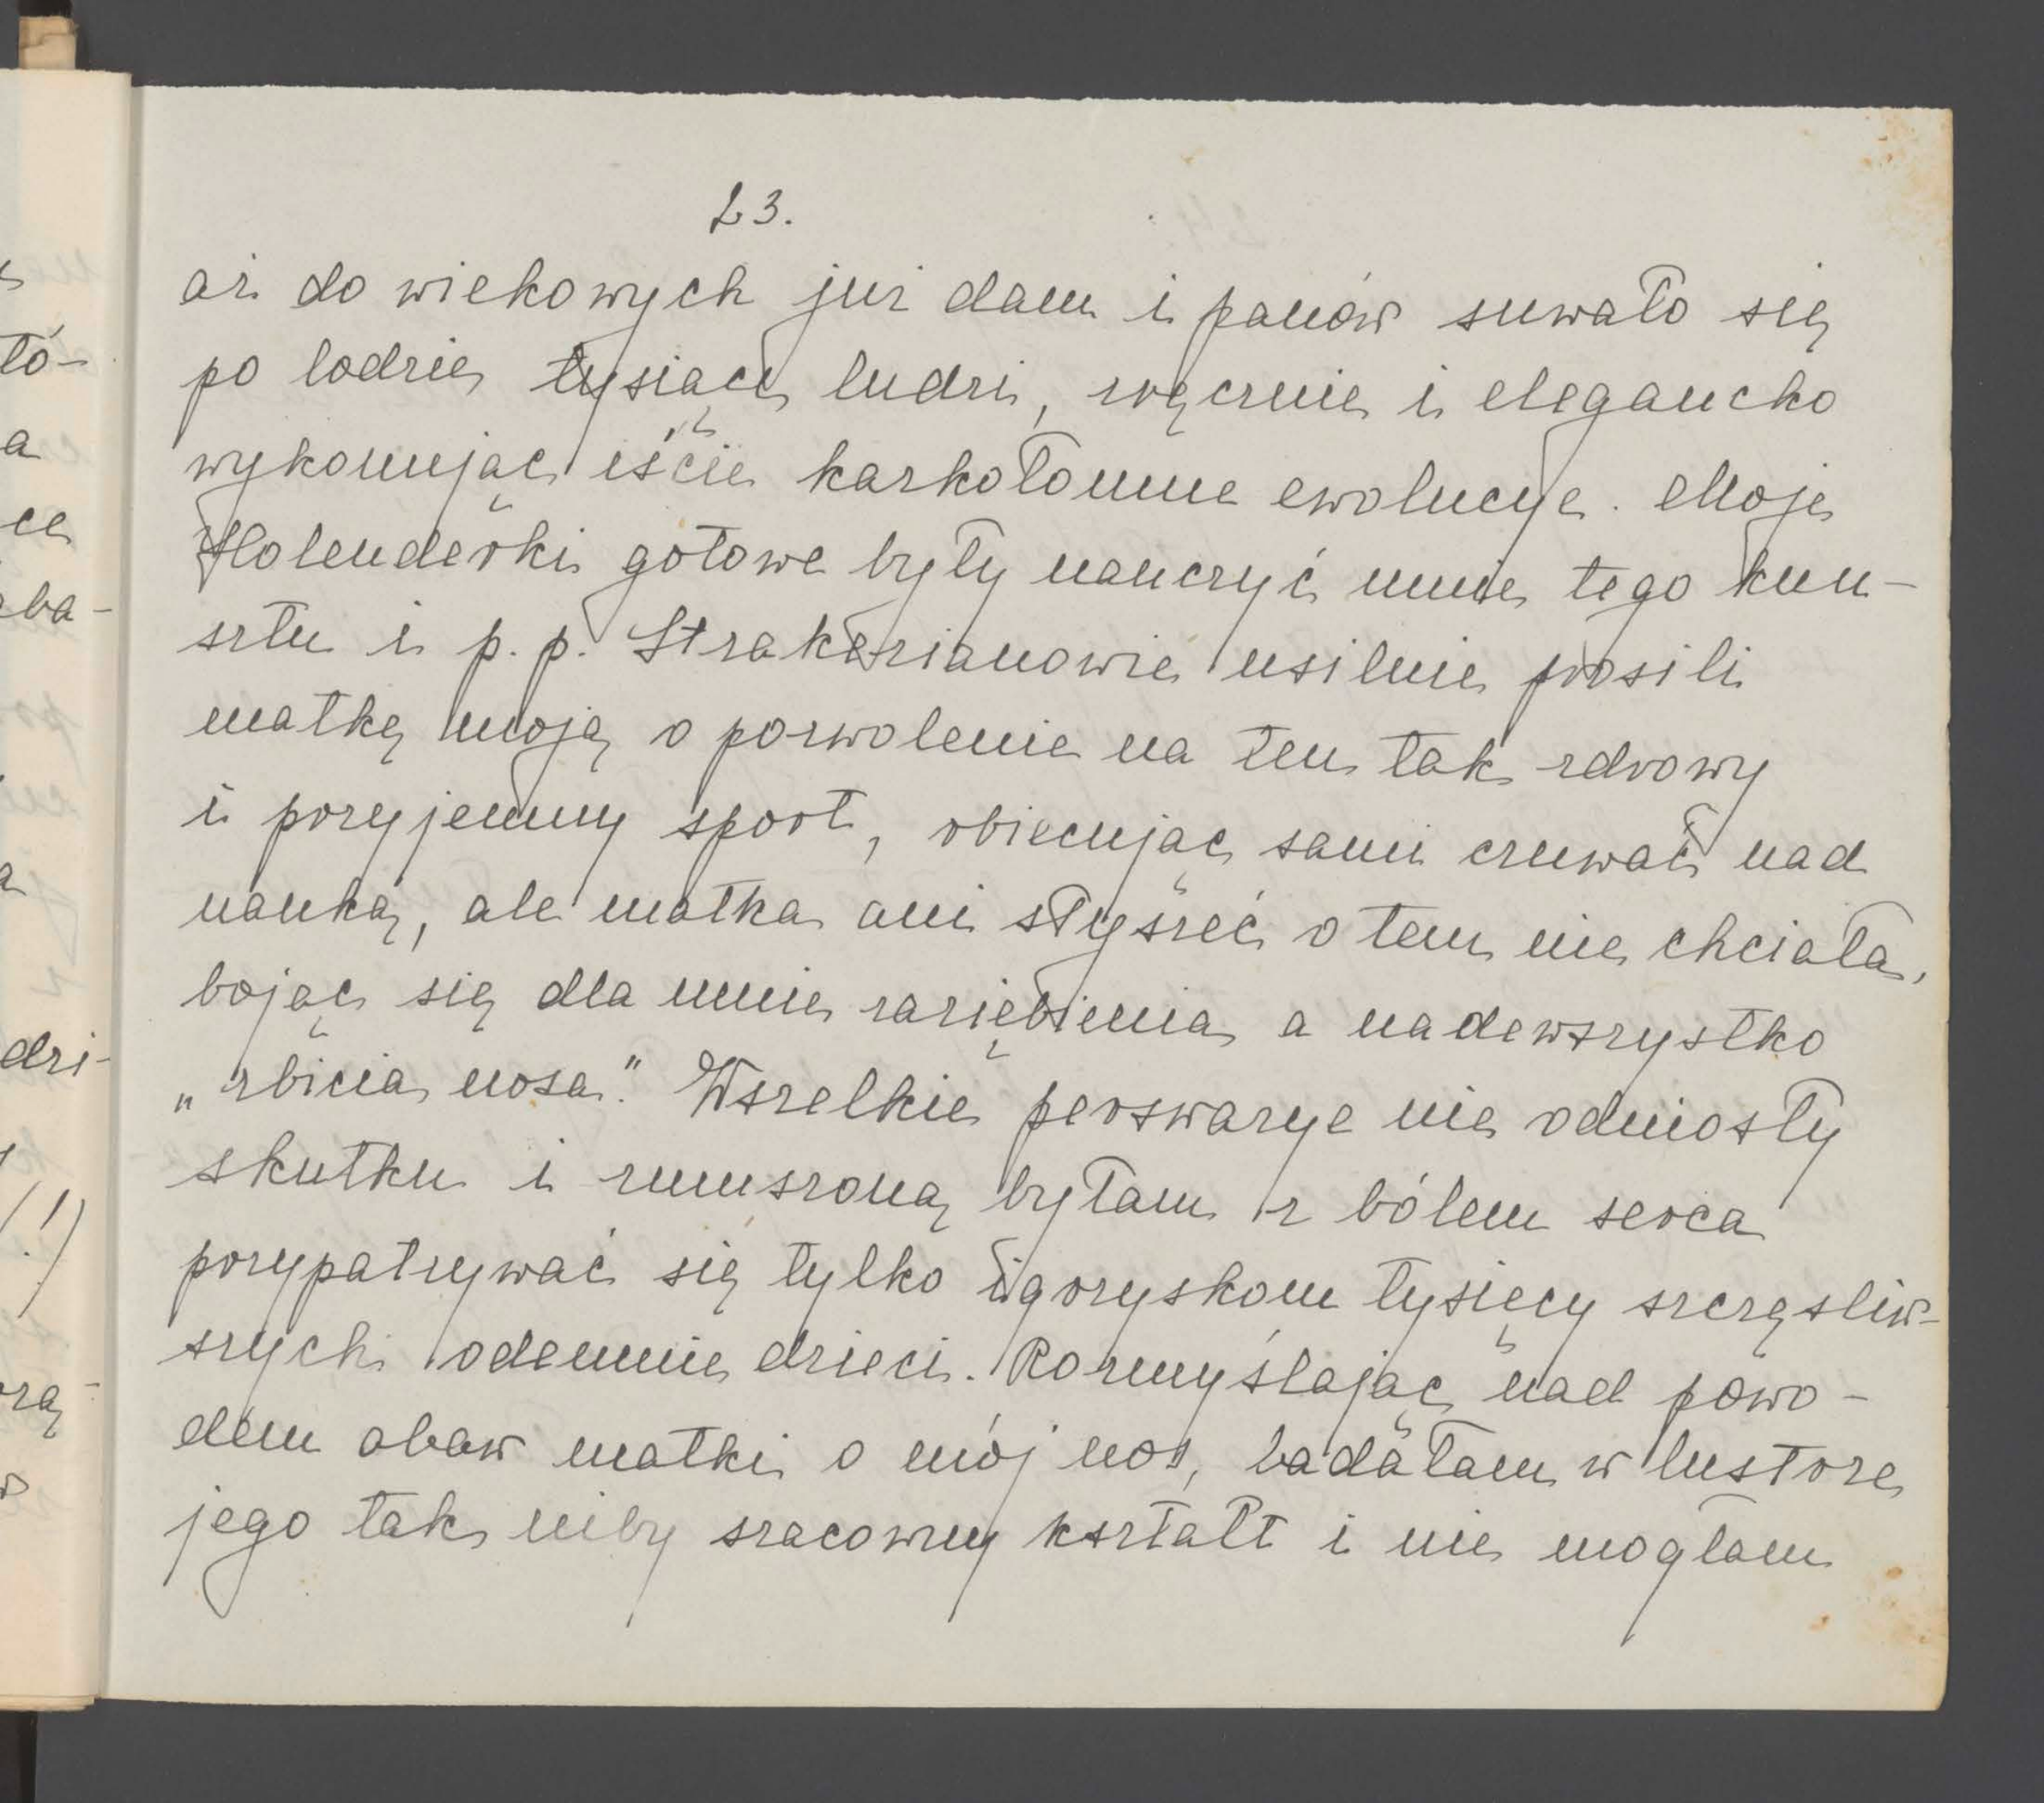 23.
aż do wiekowych już dam i panów suwało się
po lodzie tysiące ludzi, zręcznie i elegancko
wykonując iście karkołomne ewolucye. Moje
Holenderki gotowe były nauczyć mnie tego kun-
sztu i p. p. Strakerzianowie usilnie prosili
matkę moją o pozwolenie na ten tak zdrowy
i przyjemny sport, obiecując sami czuwać nad
nauką, ale matka ani słyszeć o tem nie chciała,
bojąc się dla mnie zaziębienia a nadewszystko
„zbicia nosa." Wszelkie perswazye nie odniosły
skutku i zmuszoną byłam z bólem serca
przypatrywać się tylko igrzyskom tysięcy szczęśliw-
szych odemnie dzieci. Rozmyślając nad powo-
dem obaw matki o mój nos, badałam w lustrze
jego tak niby szacowny kształt i nie mogłam
tó-
a
ce
ba-
a
dzi-
(!)
rzą-